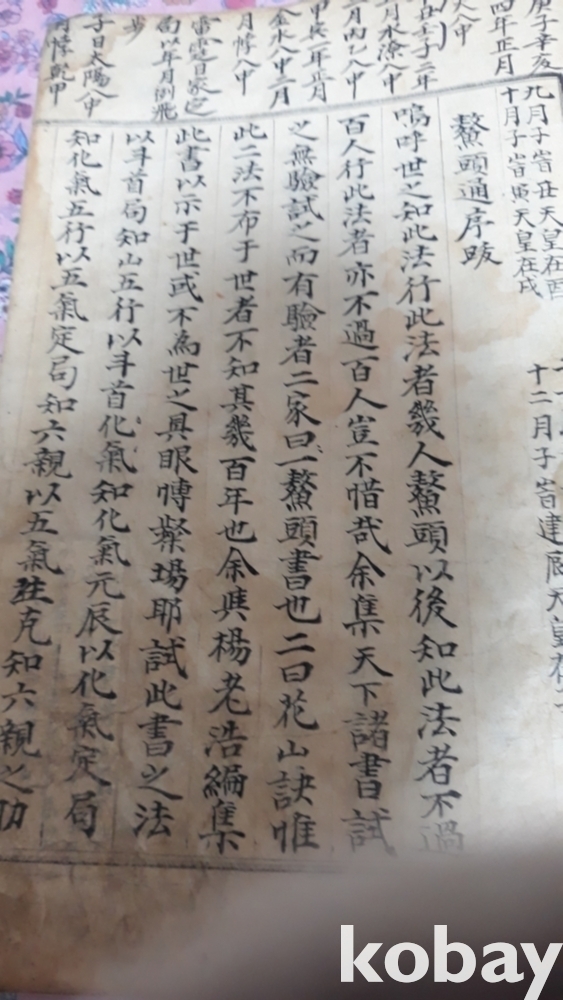 庚子辛亥
四年正月
入八甲
丑壬子二年
月水潦八甲
月丙乙八甲
甲長一年正月
金水八甲二月
月修八甲
雷霆白家定
局以年月例飛
步
子日太陽八甲
九月子皆丑天皇在酉
十月子皆寅天皇在戌
十二月子皆建辰天皇在
鰲頭通序跋
嗚呼世之知此法行此法者幾人鰲頭以後知此法者不過
百人行此法者亦不過百人豈不惜哉余集天下諸書試
之無驗試之而有驗者二家曰一鰲頭書也二曰花山訣惟
此二法不布于世者不知其幾百年也余與楊老浩編集
此書以示于世或不為世之具眼博槃場耶試此書之法
以斗首局知山五行以斗首化氣知化氣元辰以化氣定局
知化氣五行以五氣定局知六親以五氣生克知六親之助
kobay